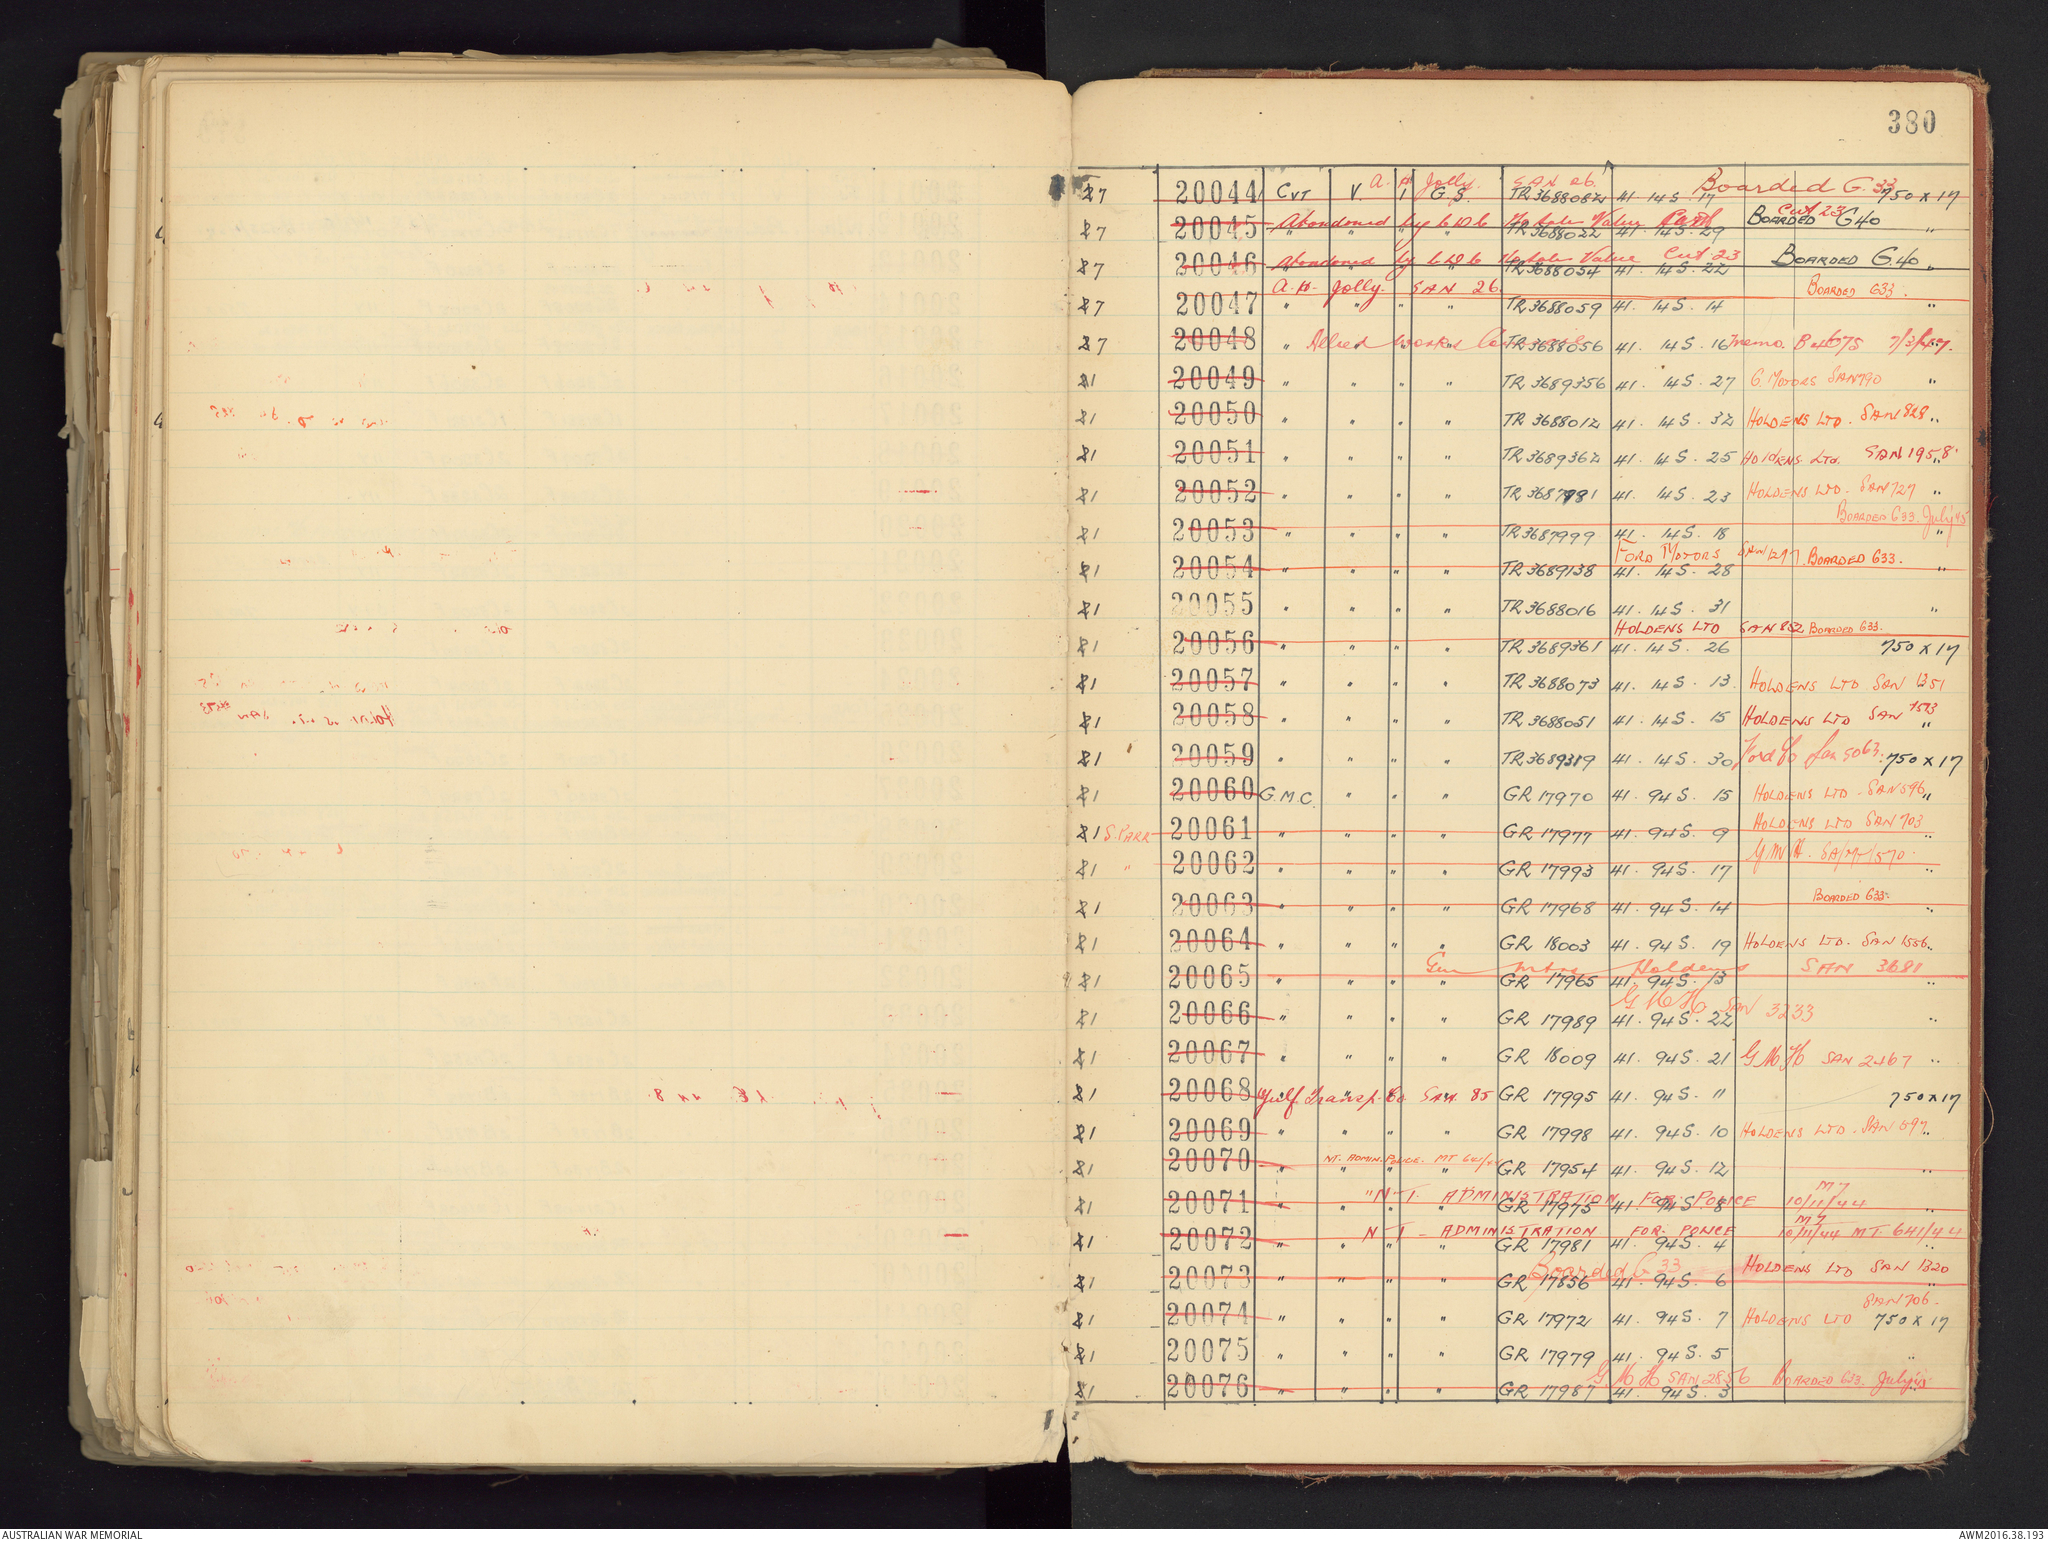 380
A. H. Jolly. SAN 26. Boarded G.33
27 20044 CVT V. 1 G.S. TR3688082 41 14 S. 17 750 x 17
Abandoned by C.D.C No Sale Value Cut 23 BOARDED G40
27 20045 " " " " TR3688022 41. 14S. 29 "
Abandoned by C.D.C No Sale Value Cut 23 BOARDED G.40
27 20046 " " " " TR3688054 41. 14 S. 22 "
A. H. Jolly SAN 26. BOARDED G33.
27 20047 " " " " TR3688059 41. 14 S. 14 "
27 20048 " Allied Works TR3688056 41. 14 S. 16 Memo. B4675 7/3/47.
21 20049 " " " " TR3689356 41. 14 S. 27 G. MOTORS SAN790 "
21 20050 " " " " TR3688012 41. 14 S. 32 HOLDENS LTD. SAN 828 "
21 20051 " " " " TR3689362 41. 14 S. 25 HOLDENS LTD. SAN 1958. "
21 20052 " " " " TR3687981 41. 14 S. 23 HOLDENS LTD. SAN727 "
BOARDED G33. July 45
21 20053 " " " " TR3687999 41. 14S. 18 "
FORD MOTORS SAN1277. BOARDED G33.
21 20054 " " " " TR3689138 41. 14S. 28 "
21 20055 " " " " TR3688016 41. 14 S. 31 "
HOLDENS LTD SAN 832 BOARDED G33.
21 20056 " " " " TR3689361 41. 14 S. 26 750 x 17
21 20057 " " " " TR3688073 41. 14 S. 13 HOLDENS LTD SAN 1351
21 20058 " " " " TR3688051 41. 14 S. 15 HOLDENS LTD SAN 1573 "
21 20059 " " " " TR3689319 41. 14 S. 30 Ford Co San 5063. 750 x 17
21 20060 G.M.C. " " " GR 17970 41. 94 S. 15 HOLDENS LTD. SAN596 "
HOLDENS LTD SAN 703
21 S. PARR 20061 " " " " GR 17977 41. 94 S. 9 "
G.M.H.
21 " 20062 " " " " GR 17993 41. 94S. 17 "
BOARDED G33.
21 20063 " " " " GR 17968 41. 94 S. 14 "
21 20064 " " " " GR 18003 41. 94 S. 19 HOLDENS LTD. SAN 1556 "
Gen Mtrs Holdens SAN 3681
21 20065 " " " " GR 17965 41. 94 S. 13 "
G M H SAN 3233
21 20066 " " " " GR 17989 41. 94 S. 22 "
21 20067 " " " " GR 18009 41. 94 S. 21 G M H SAN 2467 "
21 20068 Gulf Transp. Co SAN. 85 GR 17995 41. 94 S. 11 750 x 17
21 20069 " " " " GR 17998 41. 94 S. 10 HOLDENS LTD. SAN 597 "
NT. ADMIN. POLICE. MT 641/44
21 20070 " " " " GR 17954 41. 94 S. 12 "
N T. ADMINISTRATION FOR POLICE M7 10/11/44
21 20071 " " " " GR 17975 41. 94 S. 8 "
N T - ADMINISTRATION FOR POLICE M7 10/11/44 MT. 641/44
21 20072 " " " " GR 17981 41. 94S. 4 "
Boarded G 33 HOLDENS LTD SAN 1320
21 20073 " " " " GR 17856 41. 94 S. 6 "
SAN 706.
21 20074 " " " " GR 17972 41. 94 S. 7 HOLDENS LTD 750 x 17
21 20075 " " " " GR 17979 41. 94 S. 5 "
G.M.H SAN 2856 BOARDED G33. July 45
21 20076 " " " " GR 17987 41. 94 S. 3 "
AUSTRALIAN WAR MEMORIAL
AWM2016.38.193